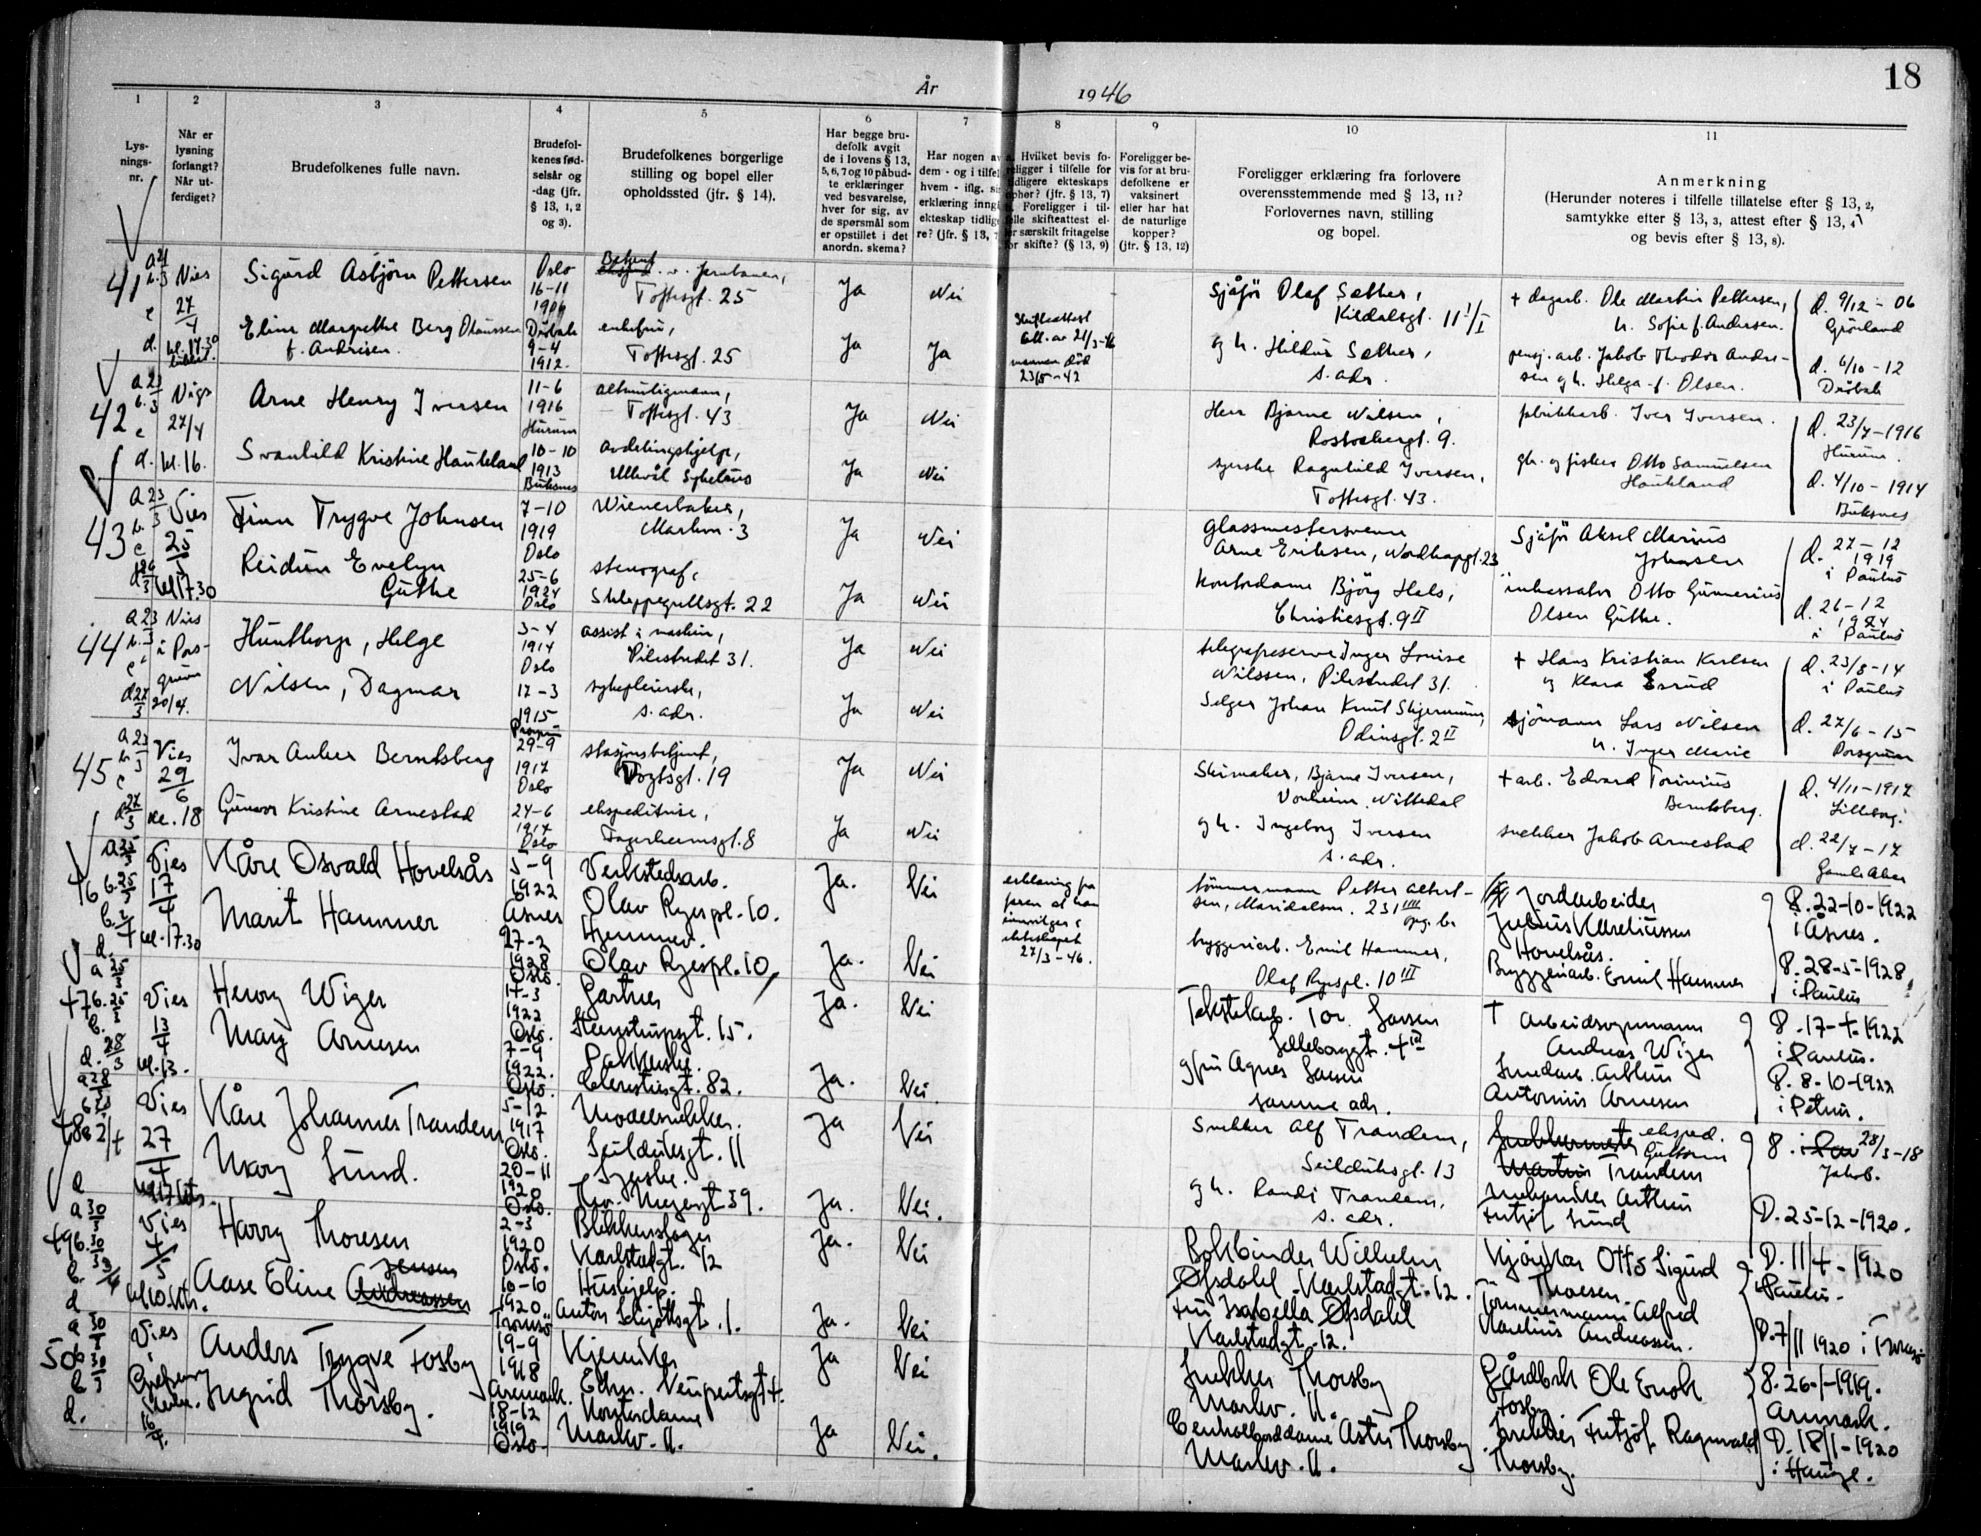 18
År 1946
1
Lys-
nings-
nr.
2
Når er
lysning
forlangt?
Når ut-
ferdiget?
3
Brudefolkenes fulle navn.
4
Brudefol-
kenes fød-
selsår og
-dag (jfr.
§ 13, 1, 2
og 3).
5
Brudefolkenes borgerlige
stilling og bopel eller
opholdssted (jfr. § 14).
6
Har begge bru-
defolk avgit
de i lovens § 13,
5, 6, 7 og 10 påbud-
te erklæringer
ved besvarelse,
hver for sig, av
de spørsmål som
er opstillet i det
anordn. skema?
7
Har nogen av
dem - og i tilfel
hvem - iflg. si
erklæring inng
ekteskap tidlig
re? (jfr. § 13, 7
8
Hvilket bevis fo-
religger i tilfelle for
tidligere ekteskaps
opher? (jfr. § 13, 7)
Foreligger i til-
felle skifteattest el-
er særskilt fritagelse
for skifte? (§ 13, 9)
9
Foreligger be-
vis for at bru-
defolkene er
vaksinert
eller har hat
de naturlige
kopper?
(jfr. § 13, 12)
10
Foreligger erklæring fra forlovere
overensstemmende med § 13, 11?
Forlovernes navn, stilling
og bopel.
11
Anmerkning
(Herunder noteres i tilfelle tillatelse efter § 13, 2,
samtykke efter § 13, 3, attest efter § 13, 4
og bevis efter § 13, 8).
41
Vies
27/4
Sigurd Asbjørn Pettersen
Oslo
16-11
1906
Toftesgt. 25
Ja
Nei
Sjåfør Olaf Sæther,
Kildalsgt. 11
+ dagarb. Ole Martin Pettersen,
h. Sofie f. Andersen.
d. 9/12 - 06
Grønland
Eline Margrethe Berg Olaussen
f. Andersen.
Drøbak
9-4
1912.
enkefru,
Toftesgt. 25
Ja
Ja
Skifteattest
mannen død
23/5-42
og h. Hildur Sæther,
s. adr.
pensj. arb. Jakob Theodor Andre-
sen og h. Helga f. Olsen.
d. 6/10 - 12
Drøbak
42
27/4
kl. 16.
Arne Henry Iversen
11-6
1916
Hurum
altmuligmann,
Toftesgt. 43
Ja
Nei
Herr Bjarne Nilsen,
fabrikkarb. Iver Iversen.
d. 23/7-1916
Hurum
Svanhild Kristine Haukland
10-10
1913
Buksnes
avdelingshjelp,
Ullevål Sykehus
Ja
Nei
syerske Ragnhild Iversen,
Toftesgt. 43.
gb. og fisker Otto Samuelsen
Haukland
d. 4/10 - 1914
Buksnes
43
Vies
25
kl 17.30
Finn Trygve Johnsen
7-10
1919
Oslo
Wienerbaker,
Markvn. 3
Ja
Nei
glassmestersvenn
Arne Eriksen, Nordkappgt. 23
Sjåfør Aksel Marius
Johnsen
d. 27-12
1919
i Paulus
Reidun Evelyn
Guthe
25-6
1924
Oslo
stenograf,
Schleppegrellsgt. 22
Ja
Nei
kontordame Bjørg Hals,
Christiesgt. 9 II
inkassator Otto Gunnerius
Olsen Guthe.
d. 26-12
1924
i Paulus
44
Vies
i Pors-
grunn
20/4.
Hunthorp, Helge
3-4
1914
Oslo
assist i maskin,
Pilestredet 31.
Ja
Nei
telegrafeserv. Inger Louise
Nilssen, Pilestredet 31.
+ Hans Kristian Karlsen
og Klara Esrud
d. 23/8-14
i Paulus
Nilsen, Dagmar
17-3
1915
sykepleierske,
s. adr.
Ja
Nei
Selger Johan Knut Skjermum,
Odinsgt. 2 II
sjømann Lars Nilsen
h. Inger Marie
d. 27/6-15
Porsgrunn
45
Vies
29/6
kl. 18
Ivar Anker Berntsberg
29-9
1917
Oslo
stasjonsbetjent,
Vogtsgt. 19
Ja
Nei
Skomaker, Bjarne Iversen,
Vonheim, Nittedal
+ arb. Edvard Torinius
Berntsberg.
d. 4/11-1917
Lilleborg.
Gunvor Kristine Arnestad
24-6
1917
Oslo
ekspeditrise,
Fagerheimsgt. 8
Ja
Nei
og h. Ingeborg Iversen
s. adr.
snekker Jakob Arnestad
d. 22/7-17
Gamle Aker
46
Vies
17/4
kl. 17.30
Kåre Osvald Hovelsås
5-9
1922
Åsnes
Verkstedsarb.
Olav Ryespl. 10.
Ja.
Nei
27/3-46.
tømmermann Petter Albert-
sen, Maridalsvn. 231
Jordarbeider
Julius Kareliussen
Hovelsås.
8. 22-10-1922
i Åsnes.
Marit Hammer
27-2
1928
Oslo.
Hjemmev.
Olav Ryespl. 10
Ja.
Nei
bryggeriarb. Emil Hammer,
Olaf Ryespl. 10 III
Bryggeriarb. Emil Hammer
8. 28-5-1928
i Paulus
47
Vies
13/4
kl. 13.
Henry Wiger
1922
Oslo.
Gartner
Steenstrupsgt. 15.
Ja.
Nei
Tekstilarb. Tor Larsen
+ Arbeidsformann
Andreas Wiger
8. 17-4-1922
i Paulus.
May Arnesen
7-9
1922.
Oslo.
Pakkerske.
82.
Ja.
Nei.
og fru Agnes Larsen
samme adr.
Antonius Arnesen
8. 8-10-1922
i Petrus.
48
Vies
27/4
Kåre Johannes Trandem
5-12
1917
Oslo.
Modellsnekker.
Seilduksgt. 11
Ja
Nei
Snekker Alf Trandem,
Seilduksgt. 13
eksped.
Guttorm
Trandem
28/3-18
Jakob.
Mary Lund.
20-11
1920
Oslo.
Syerske.
Ja.
Nei.
og h. Randi Trandem,
s. adr.
mekaniker Arthur
Fritjof Lund
D. 25-12-1920.
49
Vies
4/5
Harry Thoresen
2-3
1920
Oslo.
Blikkenslager
Karlstadgt. 12
Ja.
Nei
Bokbinder Wilhelm
Øfsdahl Karlstadgt. 12.
Kjørekar Otto Sigurd
Thoresen.
D. 11/4-1920
i Paulus.
Jensen
Aase Eline Andreassen
10-10
1920
Tromsø
Hushjelp.
Anton Schjøthsgt. 1.
Ja.
Nei
Fru Isabella Øfsdahl
Karlstadgt. 12.
Tømmermann Alfred
Karelius Andreassen.
D. 7/11 1920 i Tromsø
50
Vies
i
16/4.
Anders Trygve Fosby
19-9
1918
Aremark.
Kjemiker
Edm. Neupertsgt 4.
Ja
Nei
Snekker Thorsby
Markv. 11.
Gårdbrk Ole Enok
Fosby
8. 26-1-1919.
Aremark.
Ingrid Thorsby.
18-12
1919
Oslo.
Kontordame
Markv. 11.
Ja
Nei.
Sentralborddame Aster Thorsby
Markv. 11.
Snekker Fritjof Ragnvald
Thorsby.
D. 18/1-1920
i Hauge.